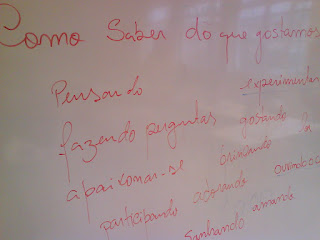 Como Saber do que gostamos
Pensando experimentar
fazendo perguntas gostando
apaixonar-se brincando
participando adorando ouvindo
Sonhando amando